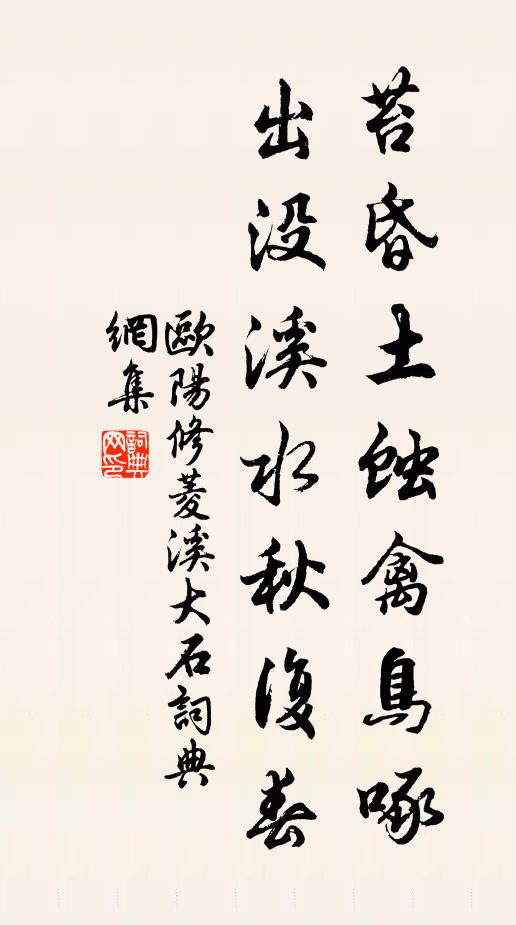 苔昏土蝕禽鳥啄
出没溪水秋復春
歐陽修菱溪大石詞典
網集
詞典網印